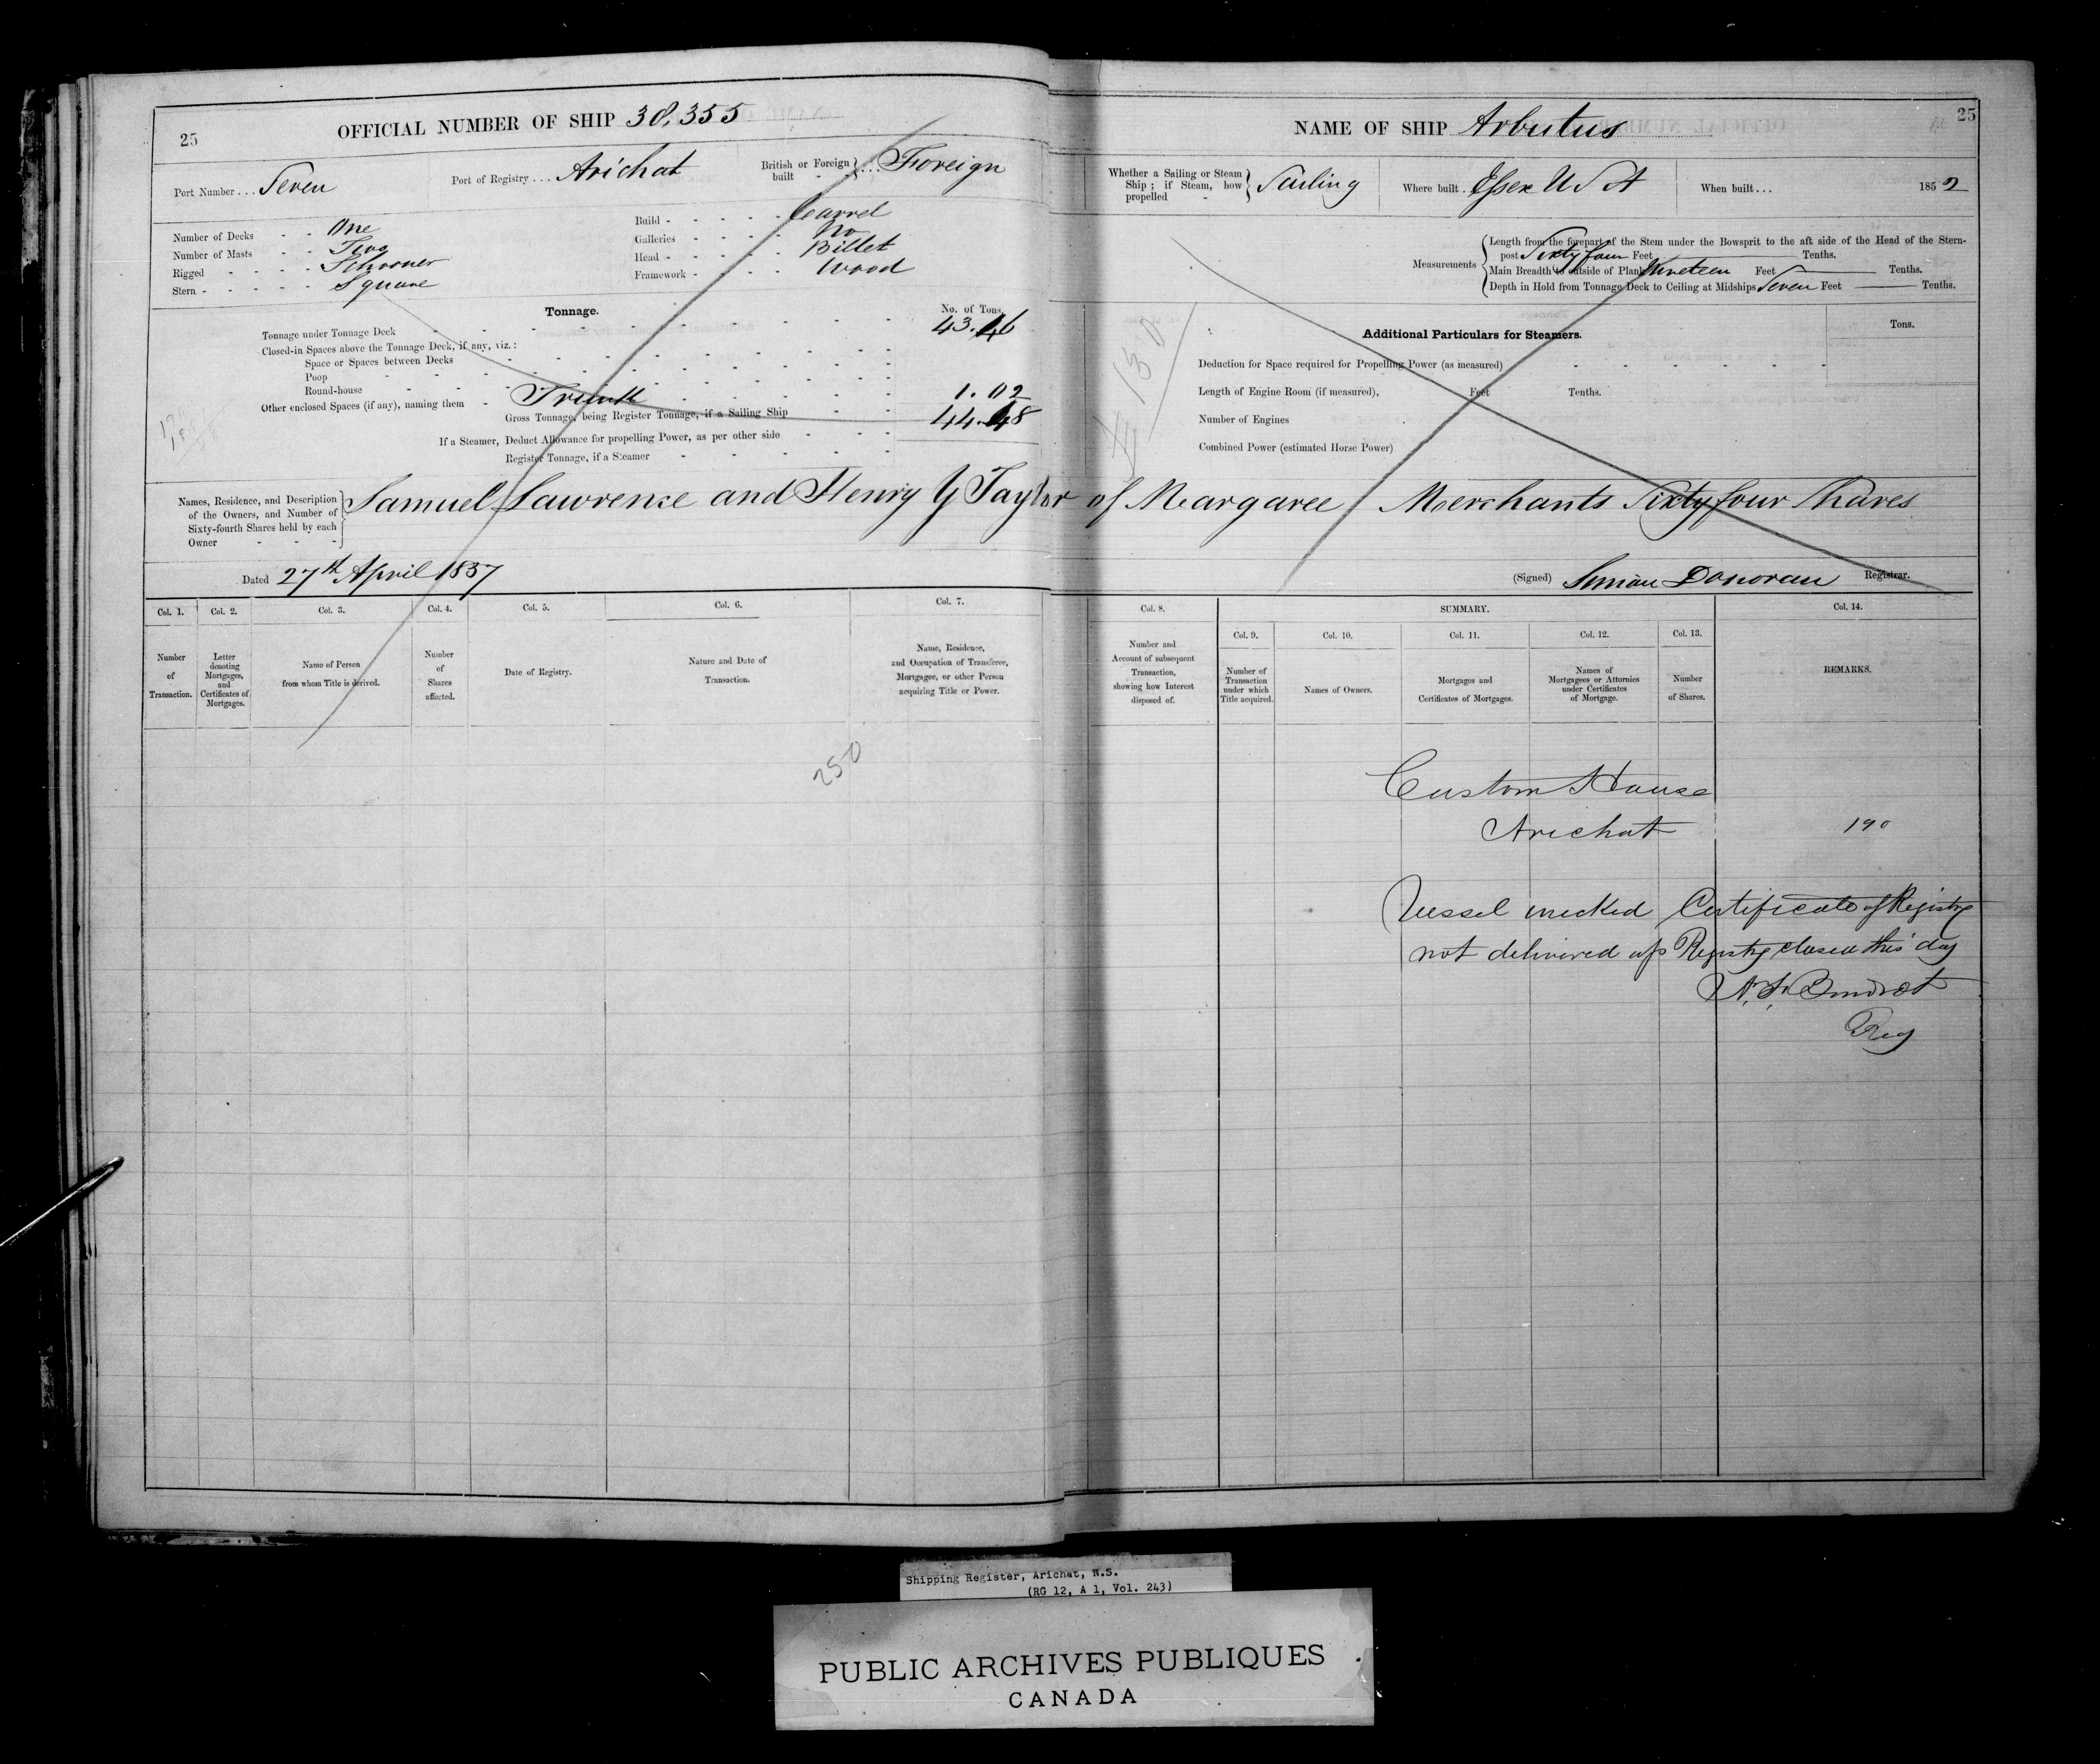 25
OFFICIAL NUMBER OF SHIP 38,355
Port Number . . . Seven
Port of Registry . . . Arichat
British or Foreign built - } . . . Foreign
Number of Decks - - One
Number of Masts - - Two
Rigged - - - - Schooner
Stern - - - - - Square
Build - - - - - Carvel
Galleries - - - - No
Head - - - - - Billet
Framework - - - - Wood
Tonnage.
No. of Tons.
Tonnage under Tonnage Deck 43.46
Closed-in Spaces above the Tonnage Deck, if any, viz.:
Space or Spaces between Decks
Poop
Round-house
Other enclosed Spaces (if any), naming them - Trunk 1.02
Gross Tonnage, being Register Tonnage, if a Sailing Ship 44.48
If a Steamer, Deduct Allowance for propelling Power, as per other side
Register Tonnage, if a Steamer
Names, Residence, and Description
of the Owners, and Number of
Sixty-fourth Shares held by each
Owner
Samuel Lawrence and Henry Y Taylor of Margaree Merchants Sixty four Shares
Dated 27th April 1857
Col. 1.
Number
of
Transaction.
Col. 2.
Letter
denoting
Mortgages,
and
Certificates of
Mortgages.
Col. 3.
Name of Person
from whom Title is derived.
Col. 4.
Number
of
Shares
affected.
Col. 5.
Date of Registry.
Col. 6.
Nature and Date of
Transaction.
Col. 7.
Name, Residence,
and Occupation of Transferee,
Mortgagee, or other Person
acquiring Title or Power.
250
25
NAME OF SHIP Arbutus
Whether a Sailing or Steam
Ship; if Steam, how
propelled - } Sailing
Where built . Essex U S A
When built . . . 1852
Measurements
Length from the forepart of the Stem under the Bowsprit to the aft side of the Head of the Stern-
post Sixty four Feet Tenths.
Main Breadth to outside of Plank Nineteen Feet Tenths.
Depth in Hold from Tonnage Deck to Ceiling at Midships Seven Feet Tenths.
Additional Particulars for Steamers.
Tons.
Deduction for Space required for Propelling Power (as measured)
Length of Engine Room (if measured), Feet Tenths.
Number of Engines
Combined Power (estimated Horse Power)
130
(Signed) Simon Donovan Registrar.
Col. 8.
Number and
Account of subsequent
Transaction,
showing how Interest
disposed of.
SUMMARY.
Col. 9.
Number of
Transaction
under which
Title acquired.
Col. 10.
Names of Owners.
Col. 11.
Mortgages and
Certificates of Mortgages.
Col. 12.
Names of
Mortgagees or Attornies
under Certificates
of Mortgage.
Col. 13.
Number
of Shares.
Col. 14.
REMARKS.
Custom House
Arichat 190
Vessel wrecked Certificate of Registry
not delivered up Registry closed this day
Reg
Shipping Register, Arichat, N.S.
(RG 12, A 1, Vol. 243)
PUBLIC ARCHIVES PUBLIQUES
CANADA